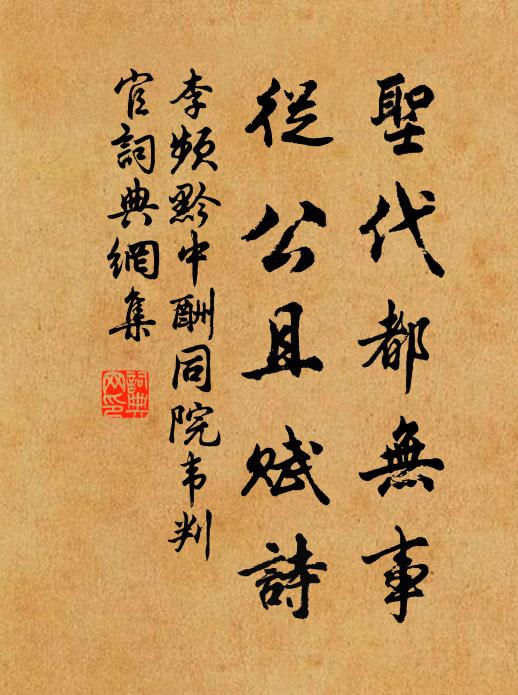 聖代都無事
從公且賦詩
李頻黔中酬同院韦判
官詞典網集
詞典
网印